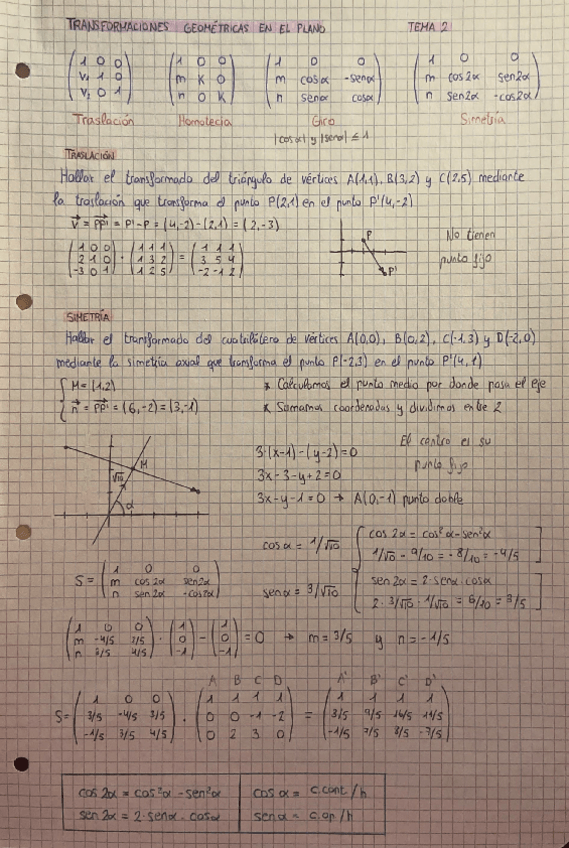 TRANSFORMACIONES GEOMÉTRICAS EN EL PLANO TEMA 2
( 1 0 0 ) ( 1 0 0 ) ( 1 0 0 ) ( 1 0 0 )
( V₁ 1 0 ) ( m K 0 ) ( m cosα -senα ) ( m cos2α sen2α )
( V₂ 0 1 ) ( n 0 K ) ( n senα cosα ) ( n sen2α -cos2α )
Traslación Homotecia Giro Simetría
|cosα| y |senα| ≤ 1
TRASLACIÓN
Hallar el transformado del triángulo de vértices A(1,1), B(3,2) y C(2,5) mediante
la traslación que transforma el punto P(2,1) en el punto P'(4,-2)
v = PP' = P'-P = (4,-2)-(2,1) = (2,-3)
( 1 0 0 ) ( 1 1 1 ) ( 1 1 1 )
( 2 1 0 ) · ( 1 3 2 ) = ( 3 5 4 )
( -3 0 1 ) ( 1 2 5 ) ( -2 -1 2 )
P
P'
No tienen
punto fijo
SIMETRÍA
Hallar el transformado del cuadrilátero de vértices A(0,0), B(0,2), C(-1,3) y D(-2,0)
mediante la simetría axial que transforma el punto P(-2,3) en el punto P'(4,1)
M = (1,2) * Calculamos el punto medio por donde pasa el eje
n = PP' = (6,-2) = (3,-1) * Sumamos coordenadas y dividimos entre 2
M
√10
α
3·(x-1)-(y-2)=0
3x-3-y+2=0
3x-y-1=0 → A(0,-1) punto doble
El centro es su
punto fijo
cosα = 1/√10
cos2α = cos²α-sen²α
1/√10 - 9/10 = -8/10 = -4/5
senα = 3/√10
sen2α = 2·senα·cosα
2·3/√10·1/√10 = 6/10 = 3/5
( 1 0 0 )
S = ( m cos2α sen2α )
( n sen2α -cos2α )
( 1 0 0 ) ( 1 ) ( 1 )
( m -4/5 3/5 ) · ( 0 ) - ( 0 ) = 0 → m = 3/5 y n = -1/5
( n 3/5 4/5 ) ( -1 ) ( -1 )
A B C D A' B' C' D'
( 1 0 0 ) ( 1 1 1 1 ) ( 1 1 1 1 )
S = ( 3/5 -4/5 3/5 ) · ( 0 0 -1 -2 ) = ( 3/5 9/5 16/5 11/5 )
( -1/5 3/5 4/5 ) ( 0 2 3 0 ) ( -1/5 7/5 8/5 -7/5 )
cos2α = cos²α - sen²α cosα = c.cont/h
sen2α = 2·senα·cosα senα = c.op/h